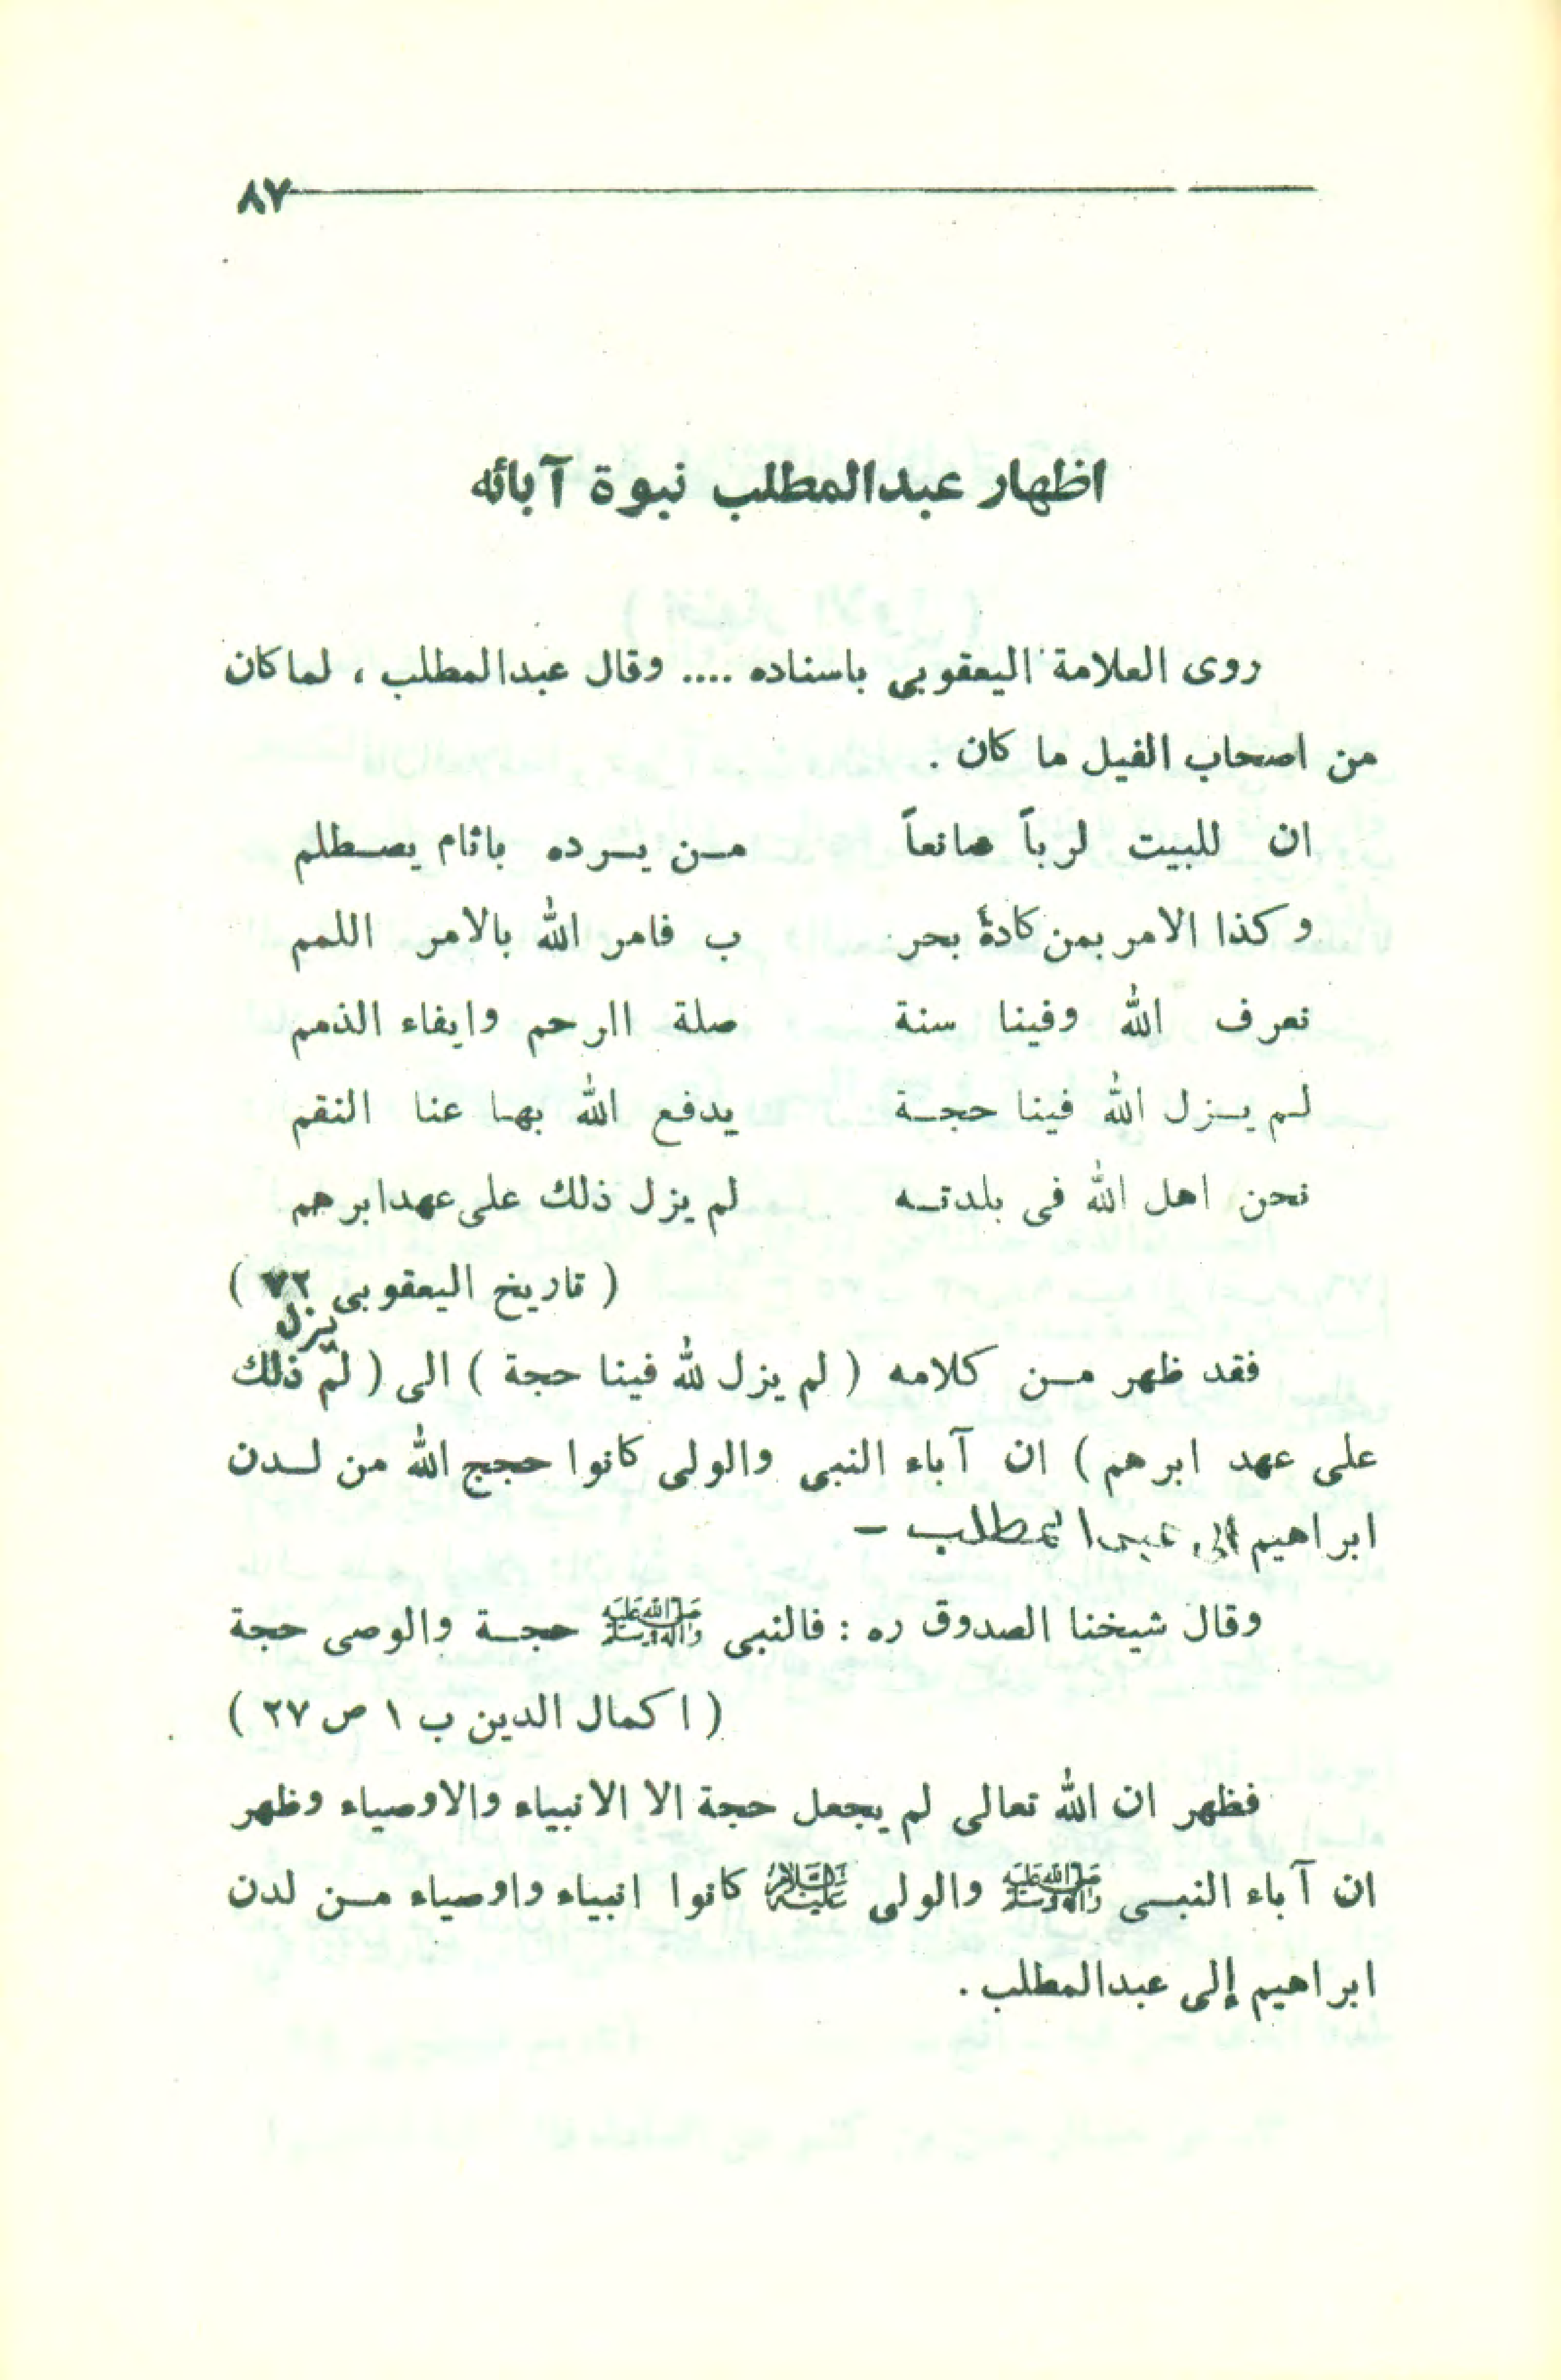 ٨٧
اظهار عبدالمطلب نبوة آبائه
روى العلامة اليعقوبى باسناده .... وقال عبدالمطلب ، لما كان
من اصحاب الفيل ما كان .
ان للبيت لرباً مانعاً من يرده باثام يصطلم
وكذا الامر بمن كادهٔ بحر ب فامر الله بالامر اللمم
نعرف الله وفينا سنة صلة الرحم وايفاء الذمم
لم يزل الله فينا حجة يدفع الله بها عنا النقم
نحن اهل الله فى بلدته لم يزل ذلك على عهد ابرهم
( تاريخ اليعقوبى ٧٢ )
يزل
فقد ظهر من كلامه ( لم يزل لله فينا حجة ) الى ( لم ذلك
على عهد ابرهم ) ان آباء النبى والولى كانوا حجج الله من لدن
ابراهيم إلى عبدالمطلب –
وقال شيخنا الصدوق ره : فالنبى صلى الله عليه وآله وسلم حجة والوصى حجة
( اكمال الدين ب ١ ص ٢٧ )
فظهر ان الله تعالى لم يجعل حجة الا الانبياء والاوصياء وظهر
ان آباء النبى صلى الله عليه وآله وسلم والولى عليه السلام كانوا انبياء واوصياء من لدن
ابراهيم إلى عبدالمطلب .